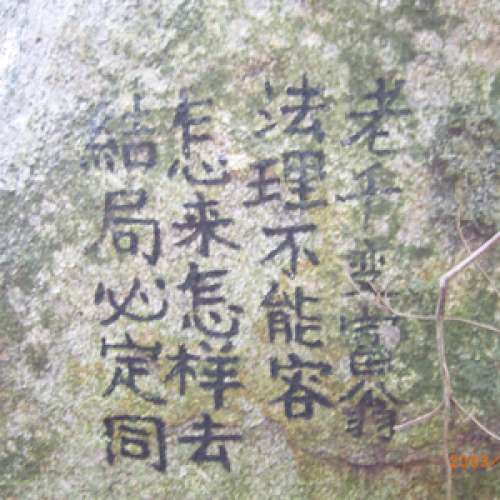 老年變富翁
法理不能容
怎来怎样去
結局必定同